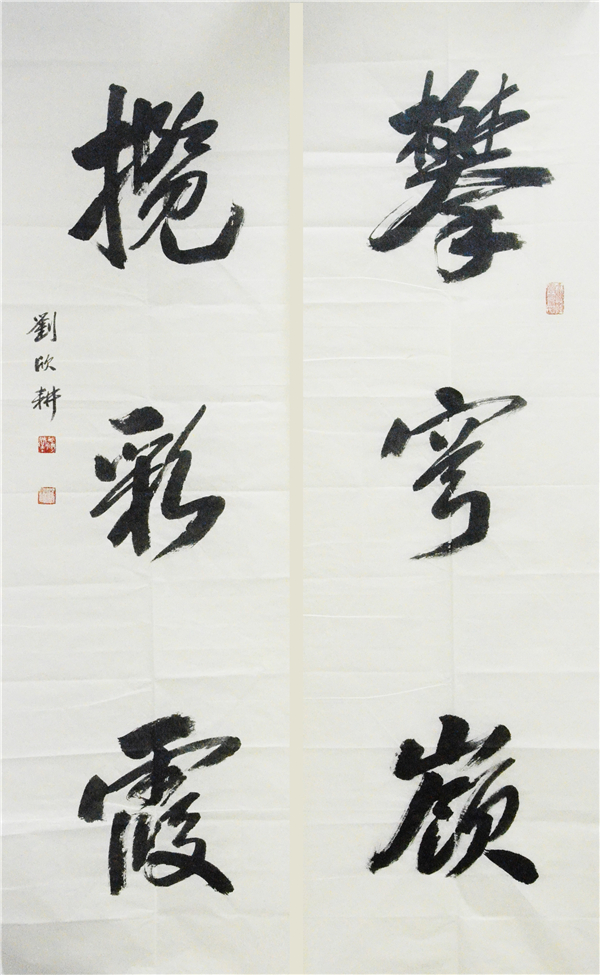 攀穹嶺
攬彩霞
劉欣耕